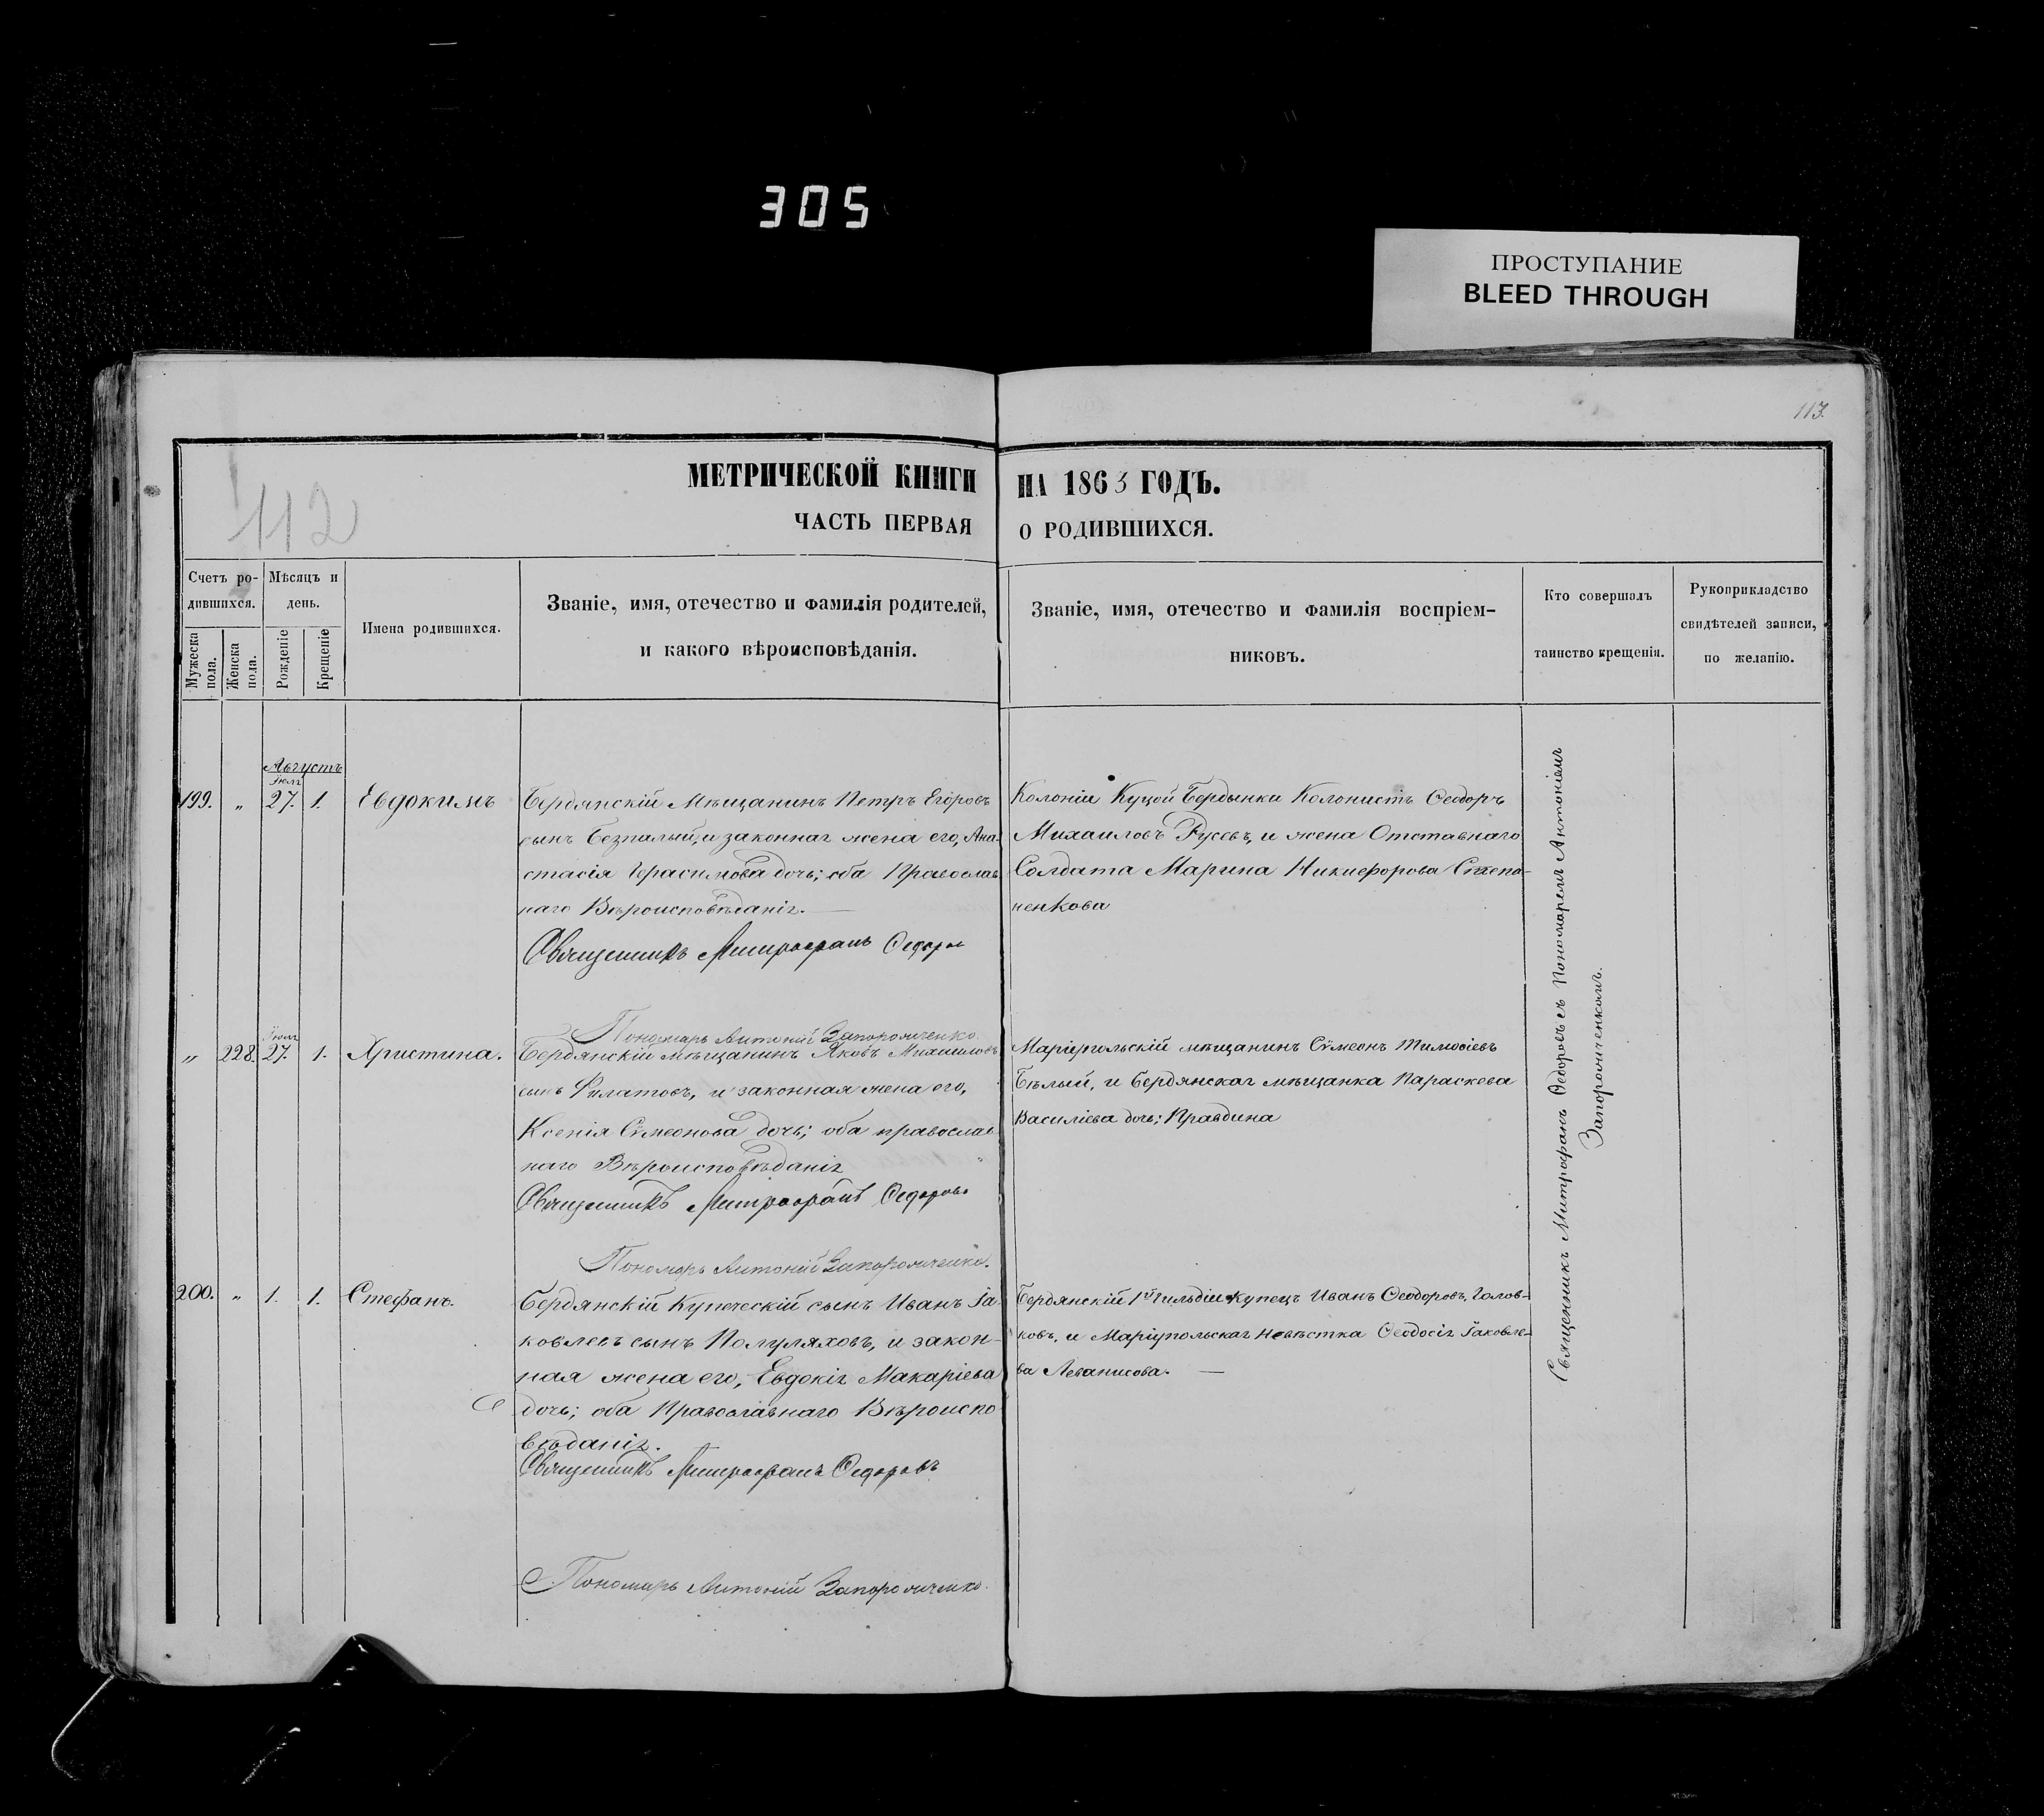 305
ПРОСТУПАНИЕ
BLEED THROUGH
113.
112
МЕТРИЧЕСКОЙ КНИГИ НА 1863 ГОДЪ.
ЧАСТЬ ПЕРВАЯ О РОДИВШИХСЯ.
Счетъ ро-
дившихся.
Мужеска
пола.
Женска
пола.
Мѣсяцъ и
день.
Рожденіе
Крещеніе
Имена родившихся.
Званіе, имя, отечество и фамилія родителей,
и какого вѣроисповѣданія.
Званіе, имя, отечество и фамилія воспріем-
никовъ.
Кто совершалъ
таинство крещенія.
Рукоприкладство
свидѣтелей записи,
по желанію.
Августъ
Іюля
199. „ 27. 1. Евдокимъ
Бердянскій Мѣщанинъ Петръ Егоровъ
сынъ Безпалый, и законная жена его, Ана-
стасія Герасимова дочь; оба Православ
наго Вѣроисповѣданія.
Священникъ Митрофанъ Федоров
Пономарь Антоній Запорожченко.
Колоніи Куцой Бердынки Колонистъ Ѳеодоръ
Михаиловъ Русевъ, и жена Отставнаго
Солдата Марина Никифорова Степа-
ненкова
Іюля
„ 228. 27. 1. Христина.
Бердянскій мѣщанинъ Яковъ Михаиловъ
сынъ Филатовъ, и законная жена его,
Ксенія Сѵмеонова дочь; оба православ
наго Вѣроисповѣданія
Священникъ Митрофанъ Федоровъ
Пономарь Антоній Запорожченко.
Маріупольскій мѣщанинъ Сѵмеонъ Тимоѳіевъ
Бѣлый, и Бердянская мѣщанка Параскева
Василіева дочь; Правдина
200. „ 1. 1. Стефанъ.
Бердянскій Купеческій сынъ Иванъ Іа
ковлевъ сынъ Полуляховъ, и закон-
ная жена его, Евдокія Макаріева
дочь; оба Православнаго Вѣроиспо
вѣданія.
Священникъ Митрофанъ Федоровъ
Пономарь Антоній Запорожченко.
Бердянскій 1й Гильдіи Купецъ Иванъ Ѳеодоровъ, Голов-
ковъ, и Маріупольская Невѣстка Ѳеодосія Іаковле-
ва Леванисова.
Священникъ Митрофанъ Ѳедоровъ съ Пономаремъ Антоніемъ
Запорожченкомъ.